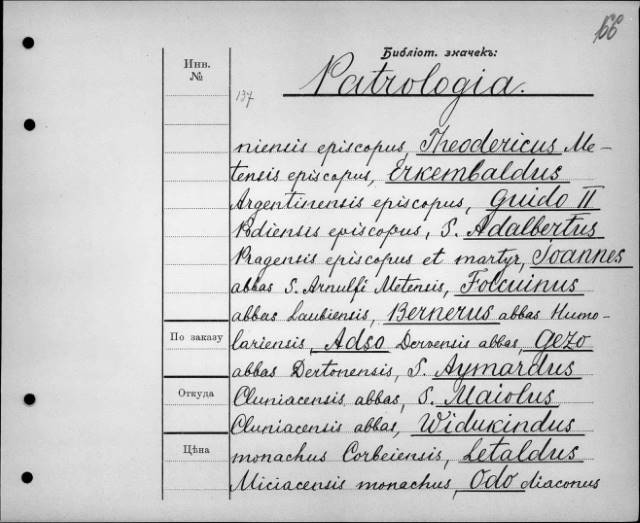 66
Библіот. значекъ:
Инв.
№
137
Patrologia.
niensis episcopus, Theodericus Me-
tensis episcopus, Erkembaldus
Argentinensis episcopus, Guido II
Podiensis episcopus, S. Adalbertus
Pragensis episcopus et martyr, Joannes
abbas S. Arnulfi Metensis, Folcuinus
abbas Laubiensis, Bernerus abbas Humo-
По заказу
lariensis, Adso Dervensis abbas, Gezo
abbas Dertonensis, S. Aymardus
Откуда
Cluniacensis abbas, S. Maiolus
Cluniacensis abbas, Widukindus
Цѣна
monachus Corbeiensis, Letaldus
Miciacensis monachus, Odo diaconus